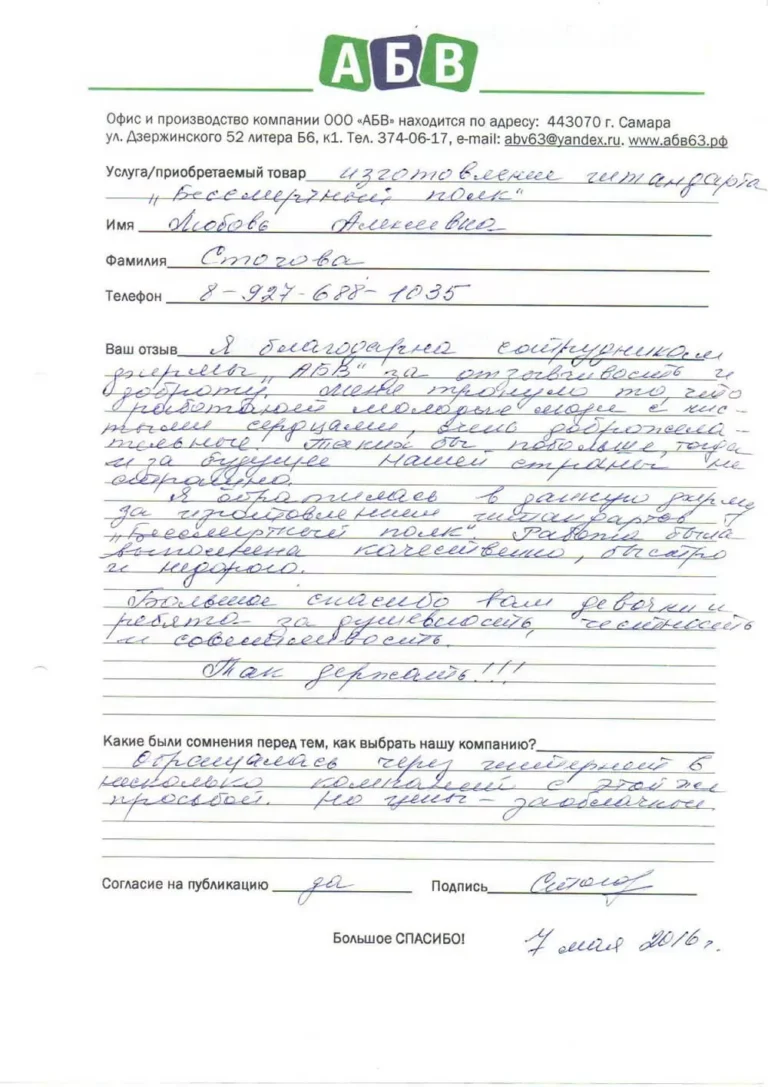 АБВ
Офис и производство компании ООО «АБВ» находится по адресу: 443070 г. Самара
ул. Дзержинского 52 литера Б6, к1. Тел. 374-06-17, e-mail: abv63@yandex.ru. www.абв63.рф
Услуга/приобретаемый товар изготовление штандарта
„Бессмертный полк“
Имя Любовь Алексеевна
Фамилия Стогова
Телефон 8-927-688-1035
Ваш отзыв Я благодарна сотрудникам
фирмы „АБВ“ за отзывчивость и
доброту. Меня тронуло то, что
работают молодые люди с чис-
тыми сердцами, очень доброжела-
тельные. Таких бы побольше, тогда
и за будущее нашей страны не
страшно.
Я обратилась в данную фирму
за изготовлением штандартов
„Бессмертный полк“. Работа была
выполнена качественно, быстро
и недорого.
Большое спасибо вам девочки и
ребята за душевность, честность
и совестливость.
Так держать!!!
Какие были сомнения перед тем, как выбрать нашу компанию?
Обращалась через интернет в
несколько компаний с этой же
просьбой. Но цены – заоблачные.
Согласие на публикацию да Подпись
Большое СПАСИБО! 7 мая 2016 г.